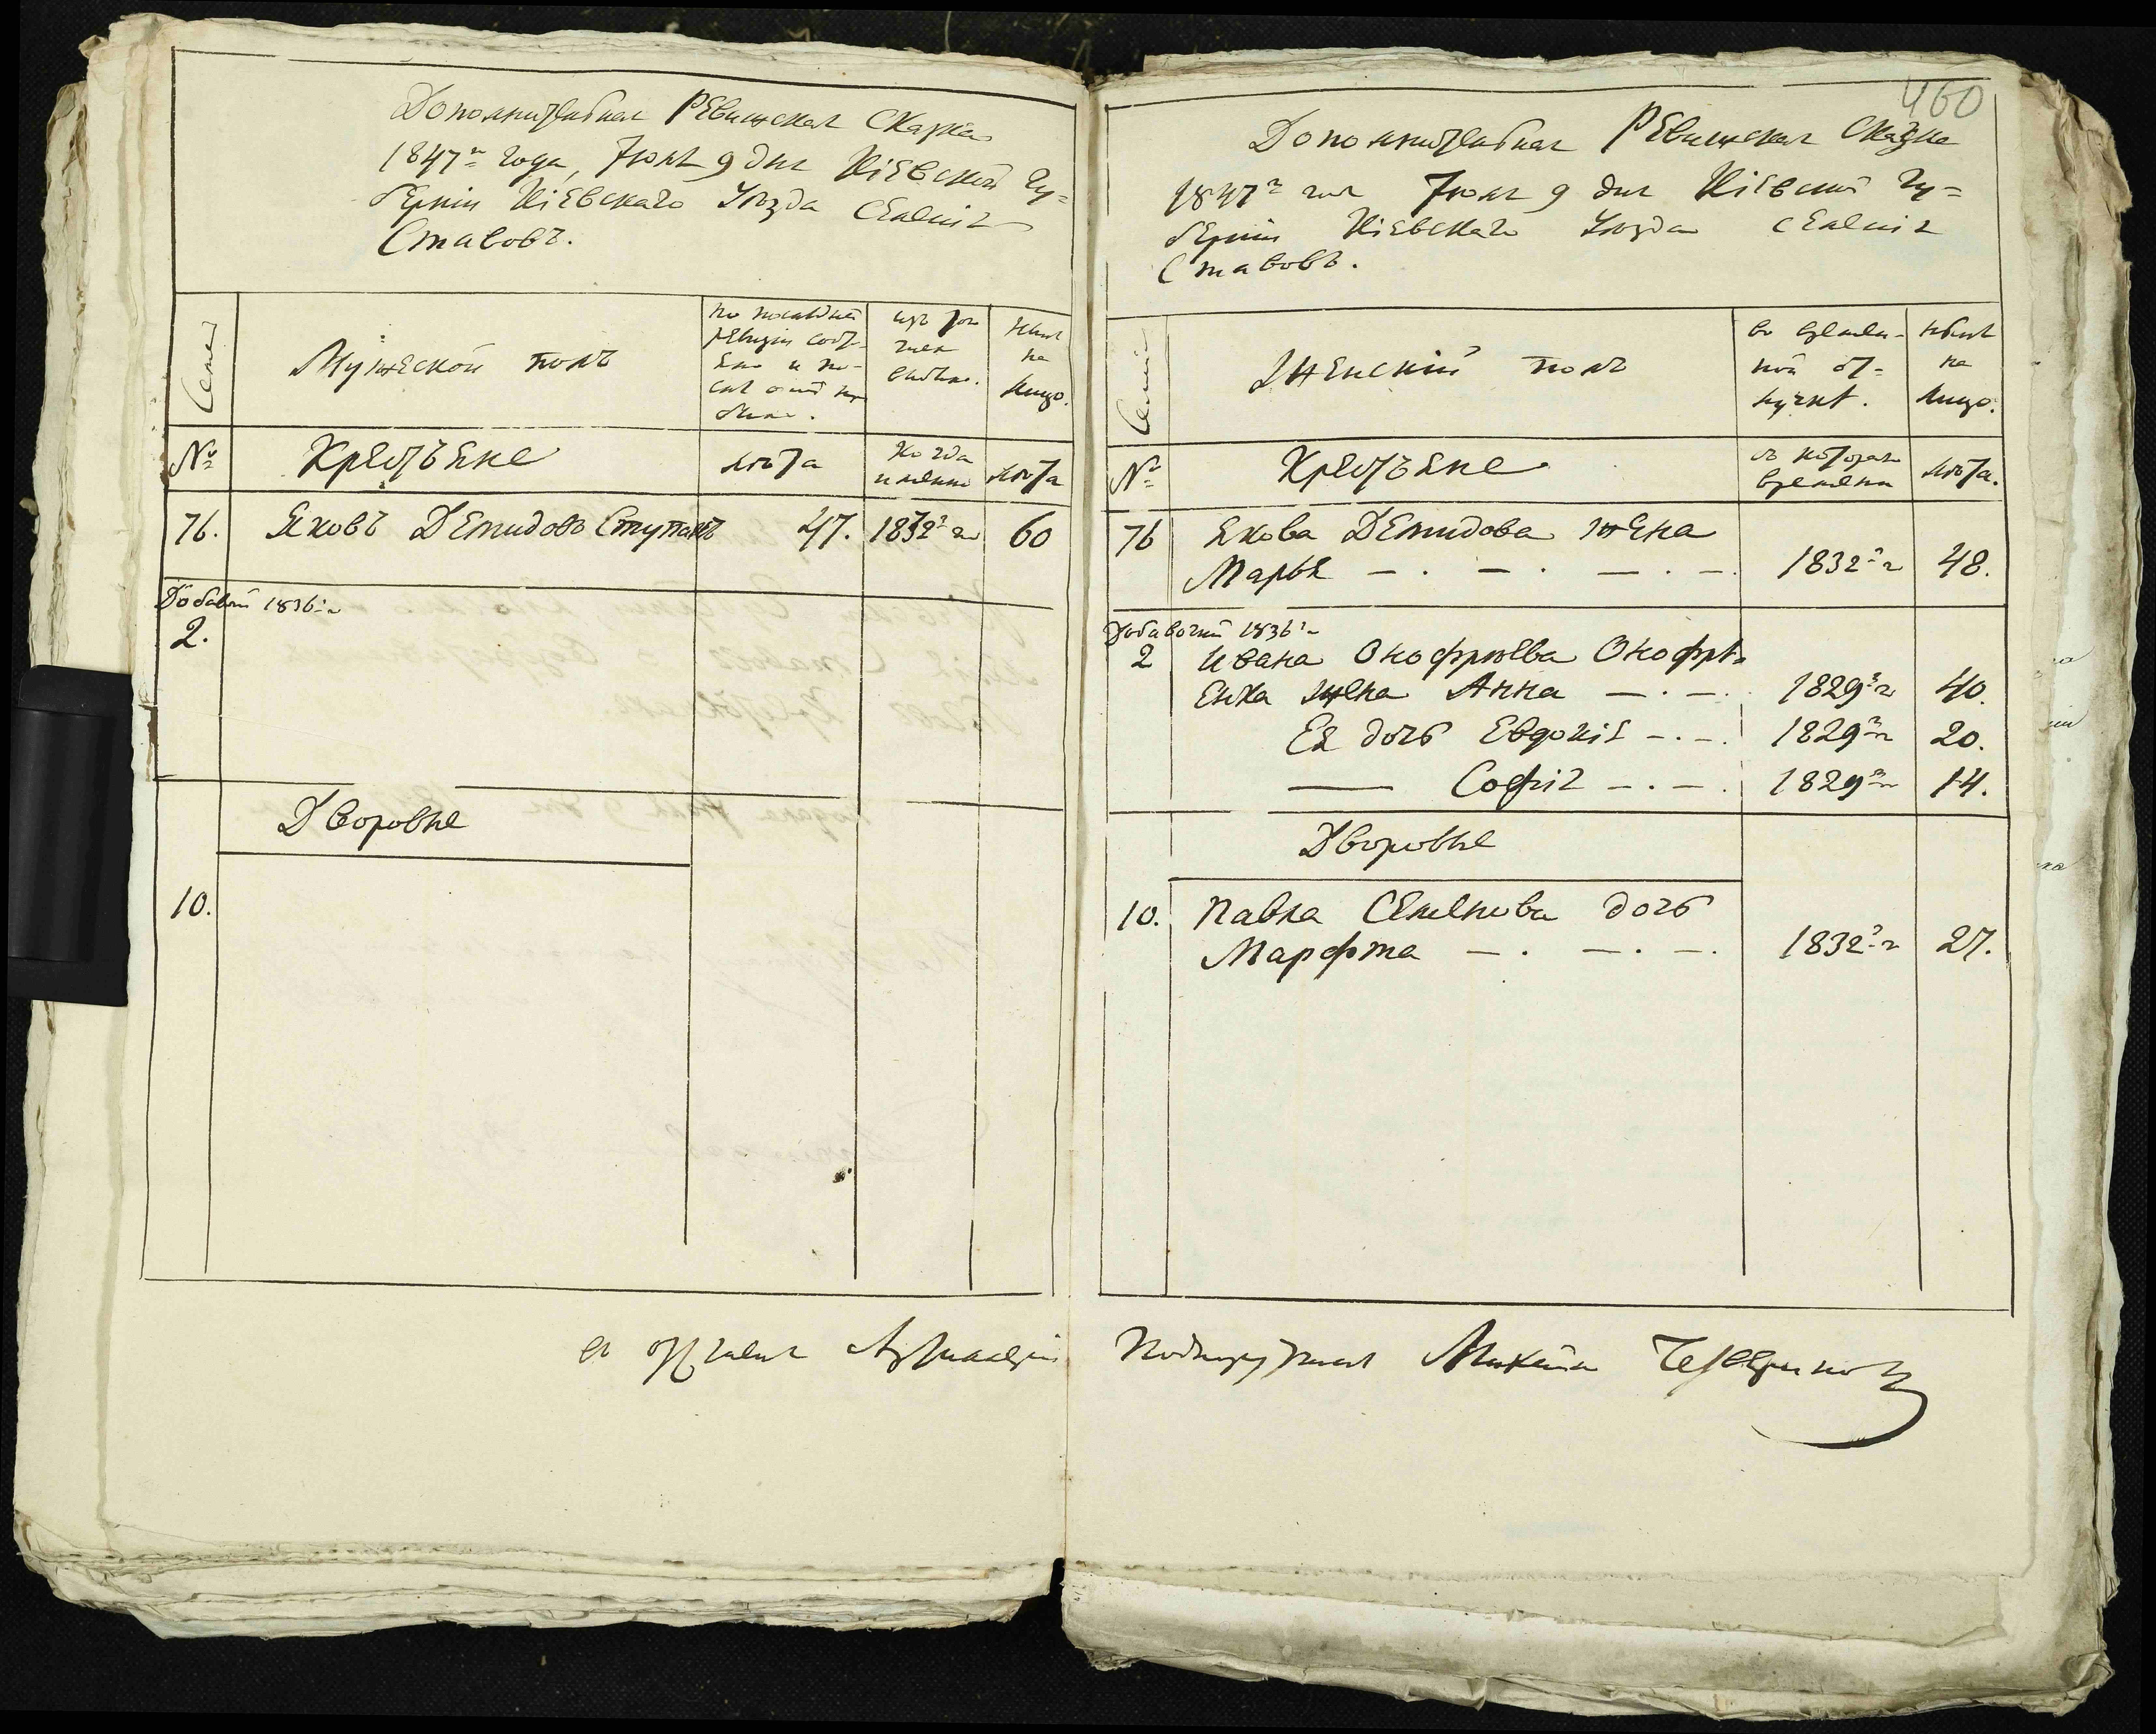 Дополнительная Ревижская Сказка
1847го года, Июля 9 дня Кіевской Гу=
берніи Кіевскаго Уѣзда Селенія
Ставовъ.
Семьи
Мужеской полъ
по послѣдней
ревизіи состо-
яло и по-
слѣ оной при
было.
изъ того
числа
выбыло.
нынѣ
на
лицо.
№
Крестьяне
лѣта
Когда
именно
лѣта
76. Яковъ Демидовъ Ступакъ 47. 1832го г. 60
Добавочн. 1836 г.
2.
Дворовые
10.
460
Дополнительная Ревижская Сказка
1847го года Июля 9 дня Кіевской Гу=
берніи Кіевскаго Уѣзда Селенія
Ставовъ.
Семьи
Женскій полъ
во времен-
ной от=
лучкѣ.
нынѣ
на
лицо.
№
Крестьяне
съ котораго
времени
лѣта.
76 Якова Демидова жена
Марья — . — . — . — 1832го г 48.
Добавочный 1836 г.
2 Ивана Онофріева Онофрі-
енка жена Анна — . — . 1829го г 40.
Ея дочь Евдокія — . — . 1829го г 20.
—— Софія — . — . 1829го г 14.
Дворовые
10. Павла Семенова дочь
Марфта — . — . — . 1832го г 27.
Никита